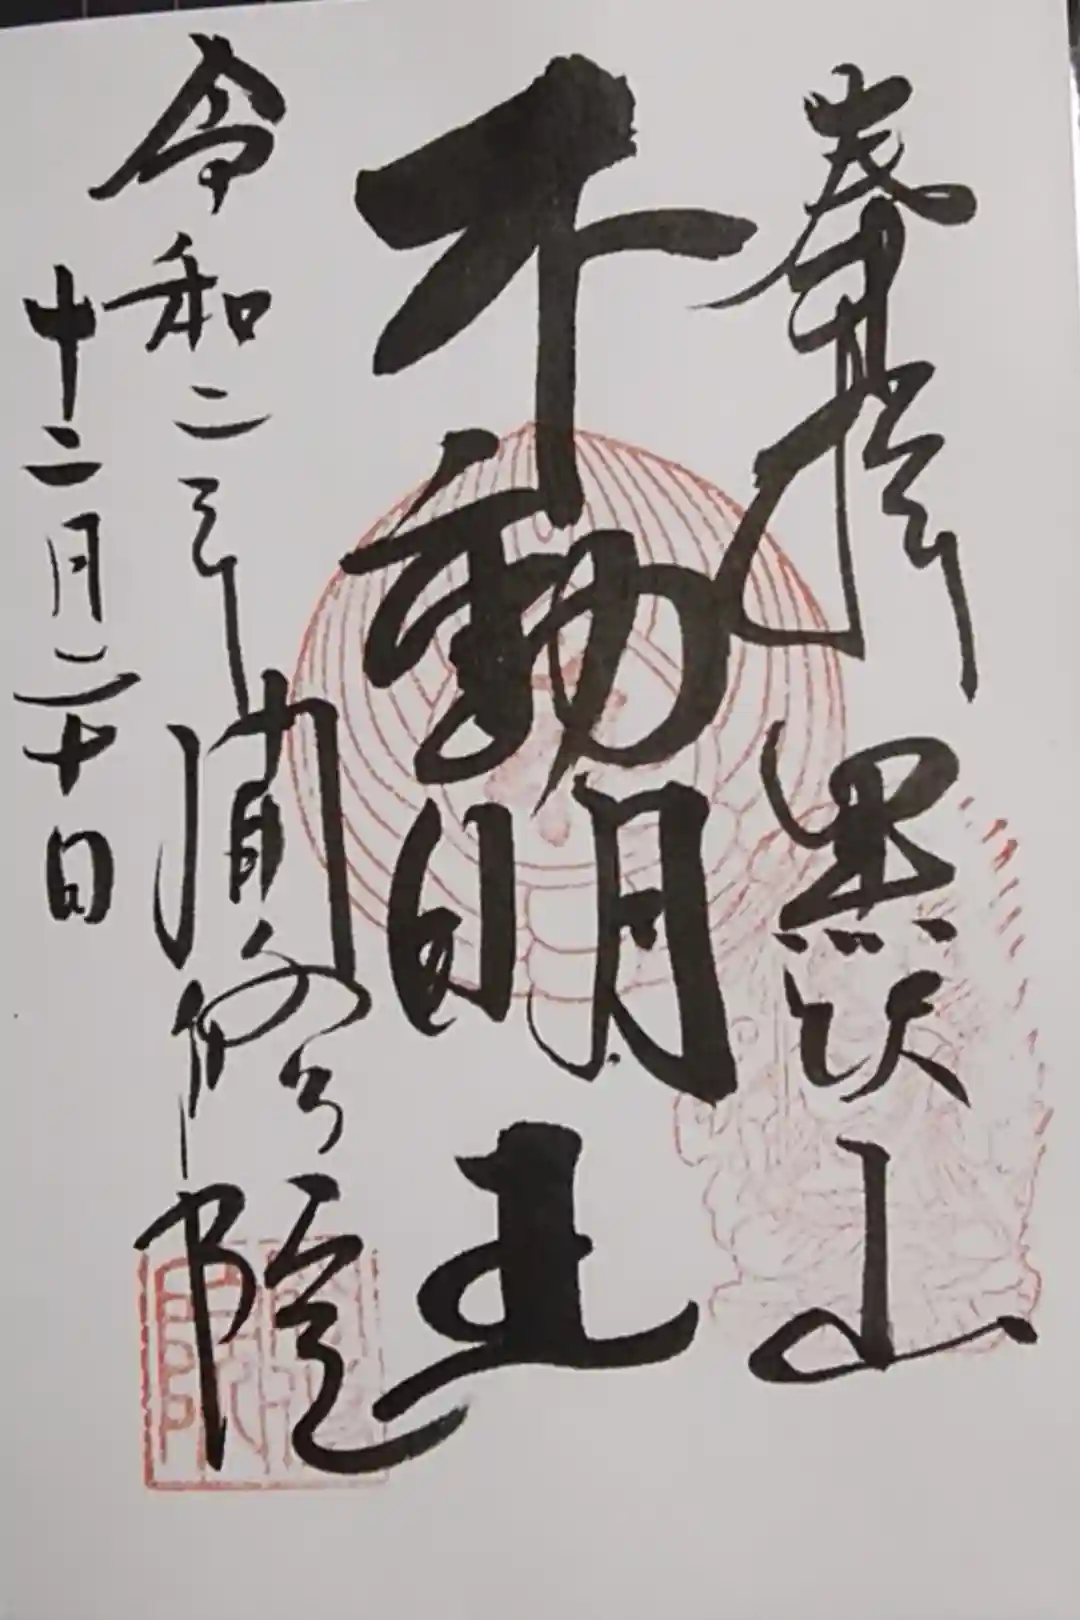 奉拝 黒沢山
不動明王
令和二年 聞修院
十二月二十日